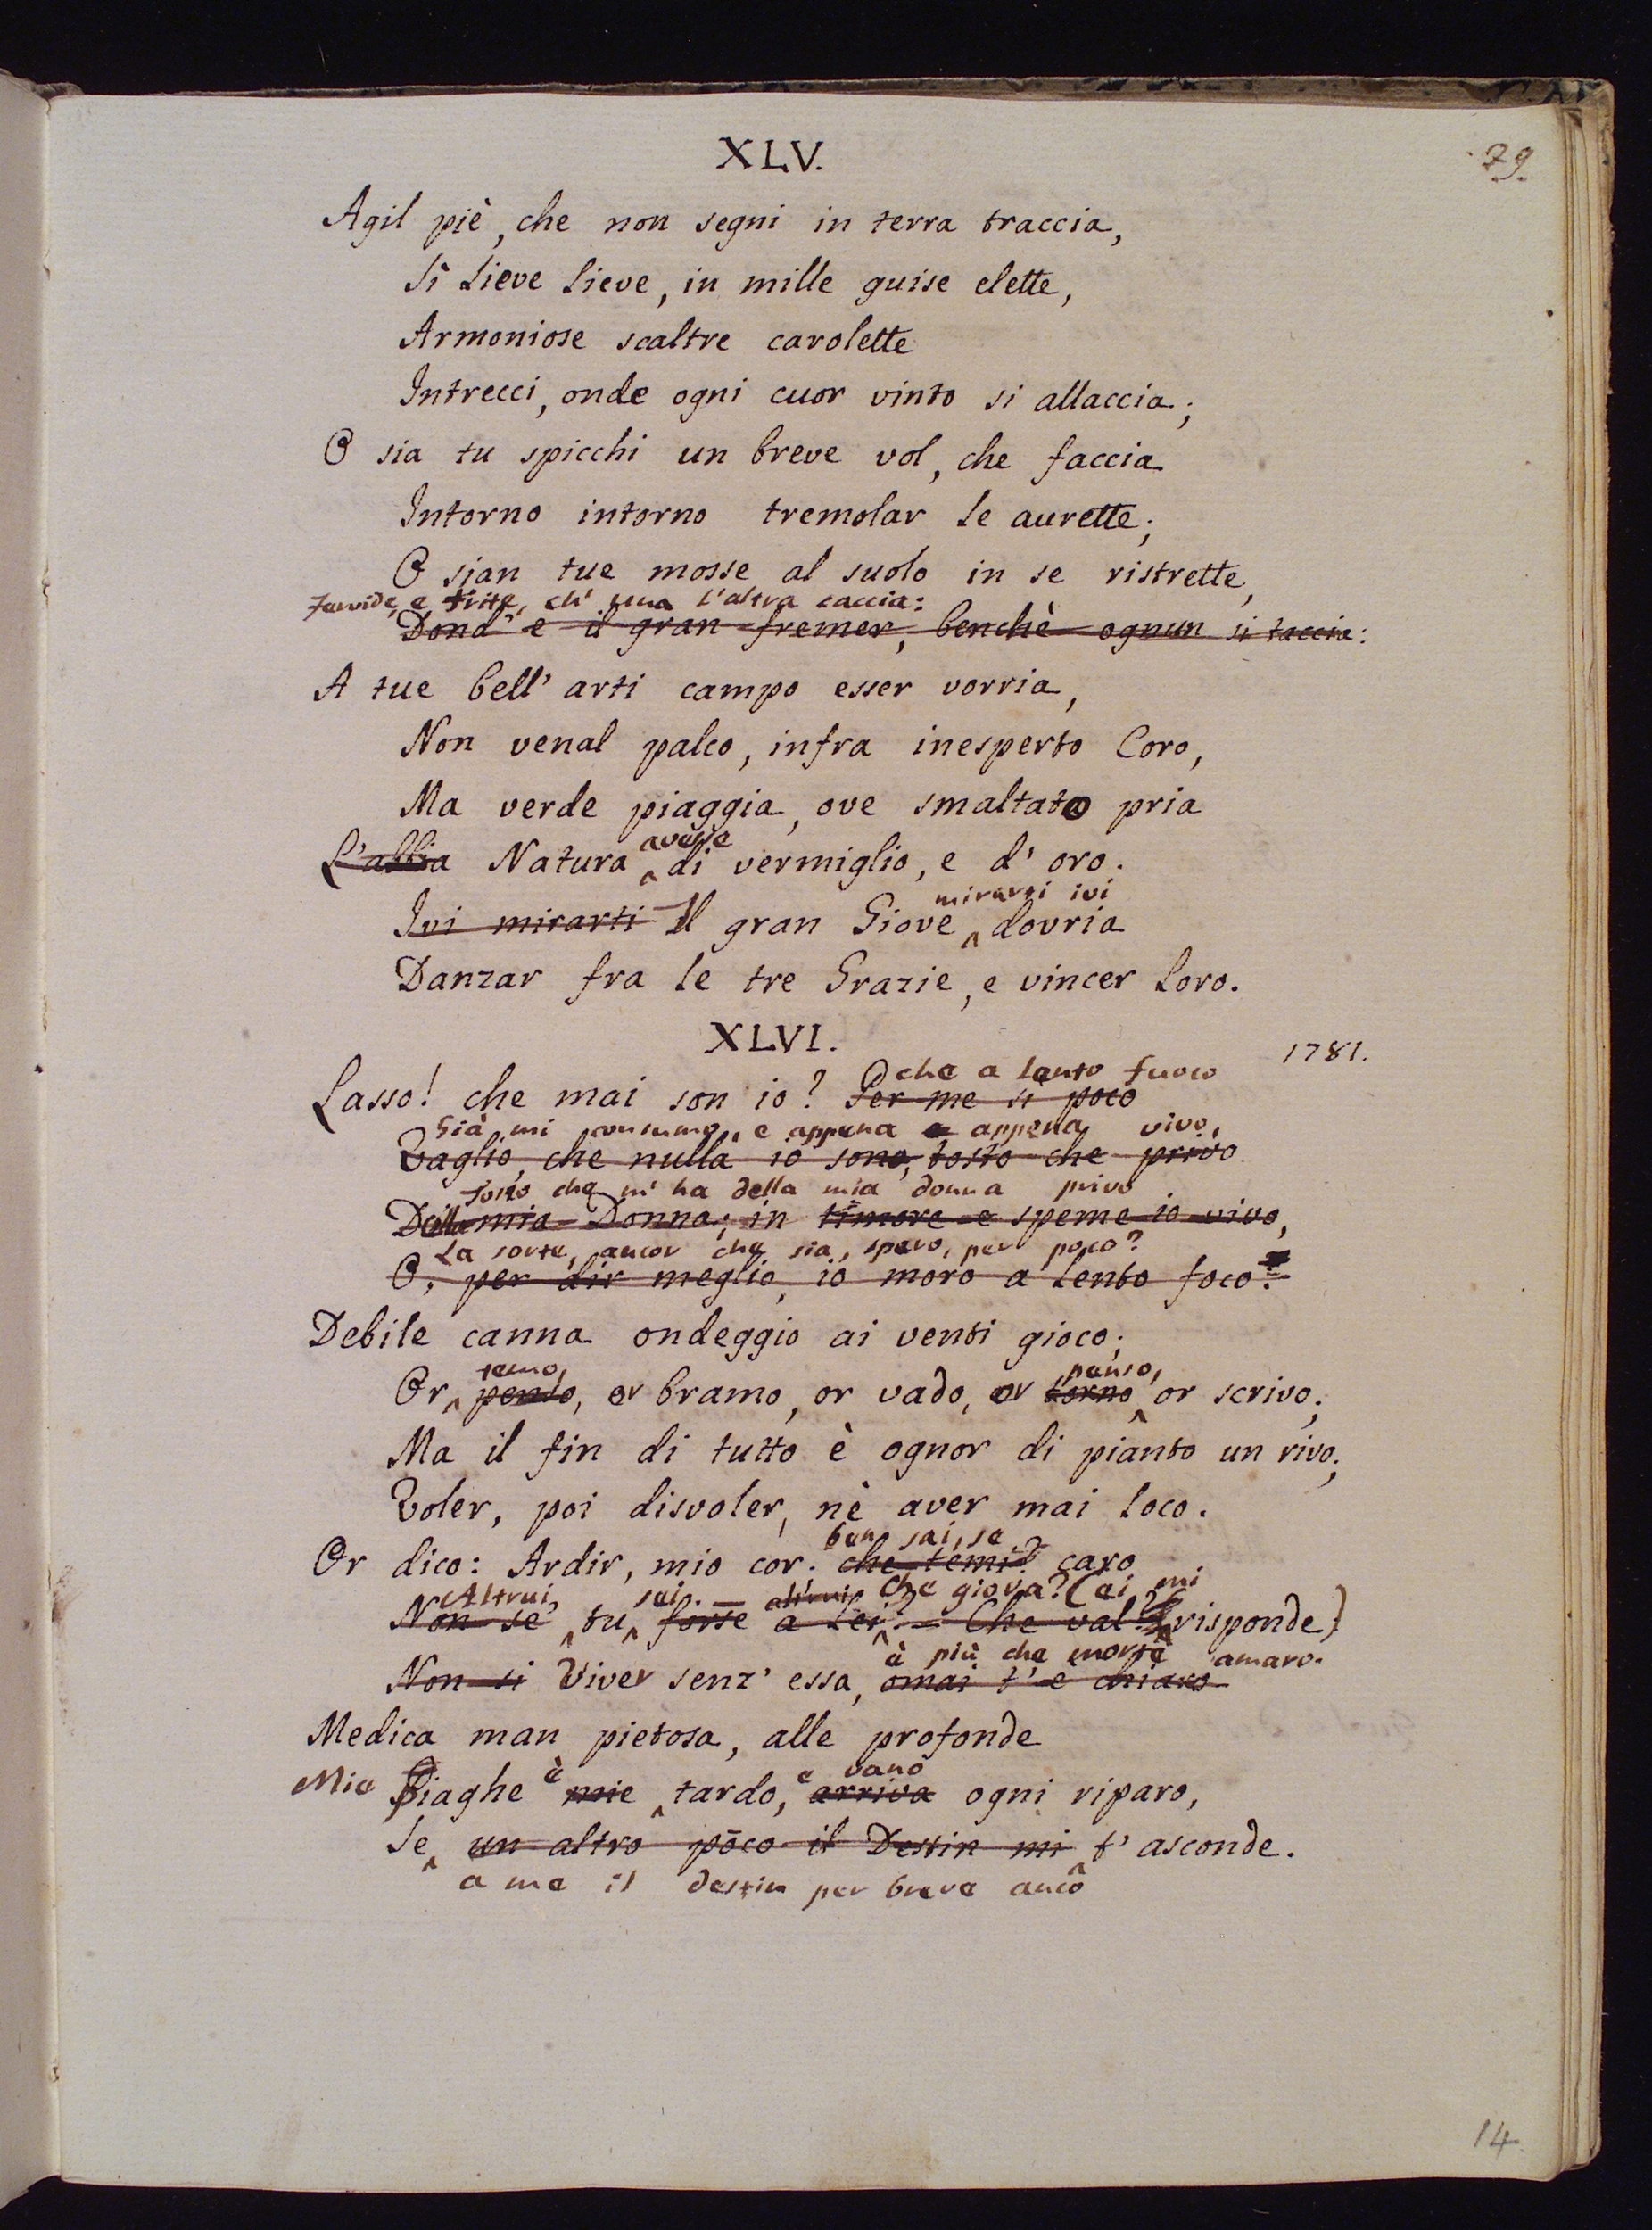 XLV.
79.
Agil piè, che non segni in terra traccia,
Sì lieve lieve, in mille guise elette,
Armoniose scaltre carolette
Intrecci, onde ogni cuor vinto si allaccia;
O sia tu spicchi un breve vol, che faccia
Intorno intorno tremolar le aurette;
O sian tue mosse al suolo in se ristrette,
Fervide, e fitte, ch' una l'altra caccia:
Dond' è il gran fremer, benchè ognun si taccia:
A tue bell' arti campo esser vorria,
Non venal palco, infra inesperto Coro,
Ma verde piaggia, ove smaltato pria
avesse
L'abbia Natura di vermiglio, e d' oro.
mirarti ivi
Ivi mirarti Il gran Giove dovria
Danzar fra le tre Grazie, e vincer loro.
XLVI.
1781.
che a lento fuoco
Lasso! che mai son io? Per me sì poco
Già mi consumo, e appena e appena vivo,
Vaglio, che nulla io sono, tosto che privo
Tosto che m' ha della mia donna privo
Della mia Donna; in timore e speme io vivo,
La sorte, ancor che sia, spero, per poco?
O, per dir meglio, io moro a lento foco?
Debile canna ondeggio ai venti gioco;
temo, penso,
Or penso, or bramo, or vado, or torno or scrivo;
Ma il fin di tutto è ognor di pianto un rivo;
Voler, poi disvoler, nè aver mai loco.
ben sai, se
Or dico: Ardir, mio cor. che temi? caro
Altrui sei. — altrui Che giova? (ei mi
Non se' tu forse a Lei? — Che val? risponde)
è più che morte amaro.
Non si Viver senz' essa, omai t' è chiaro
Medica man pietosa, alle profonde
è e vano
Mie Piaghe mie tardo, arriva ogni riparo,
Se un altro poco il Destin mi t' asconde.
a me il destin per breve anco
14